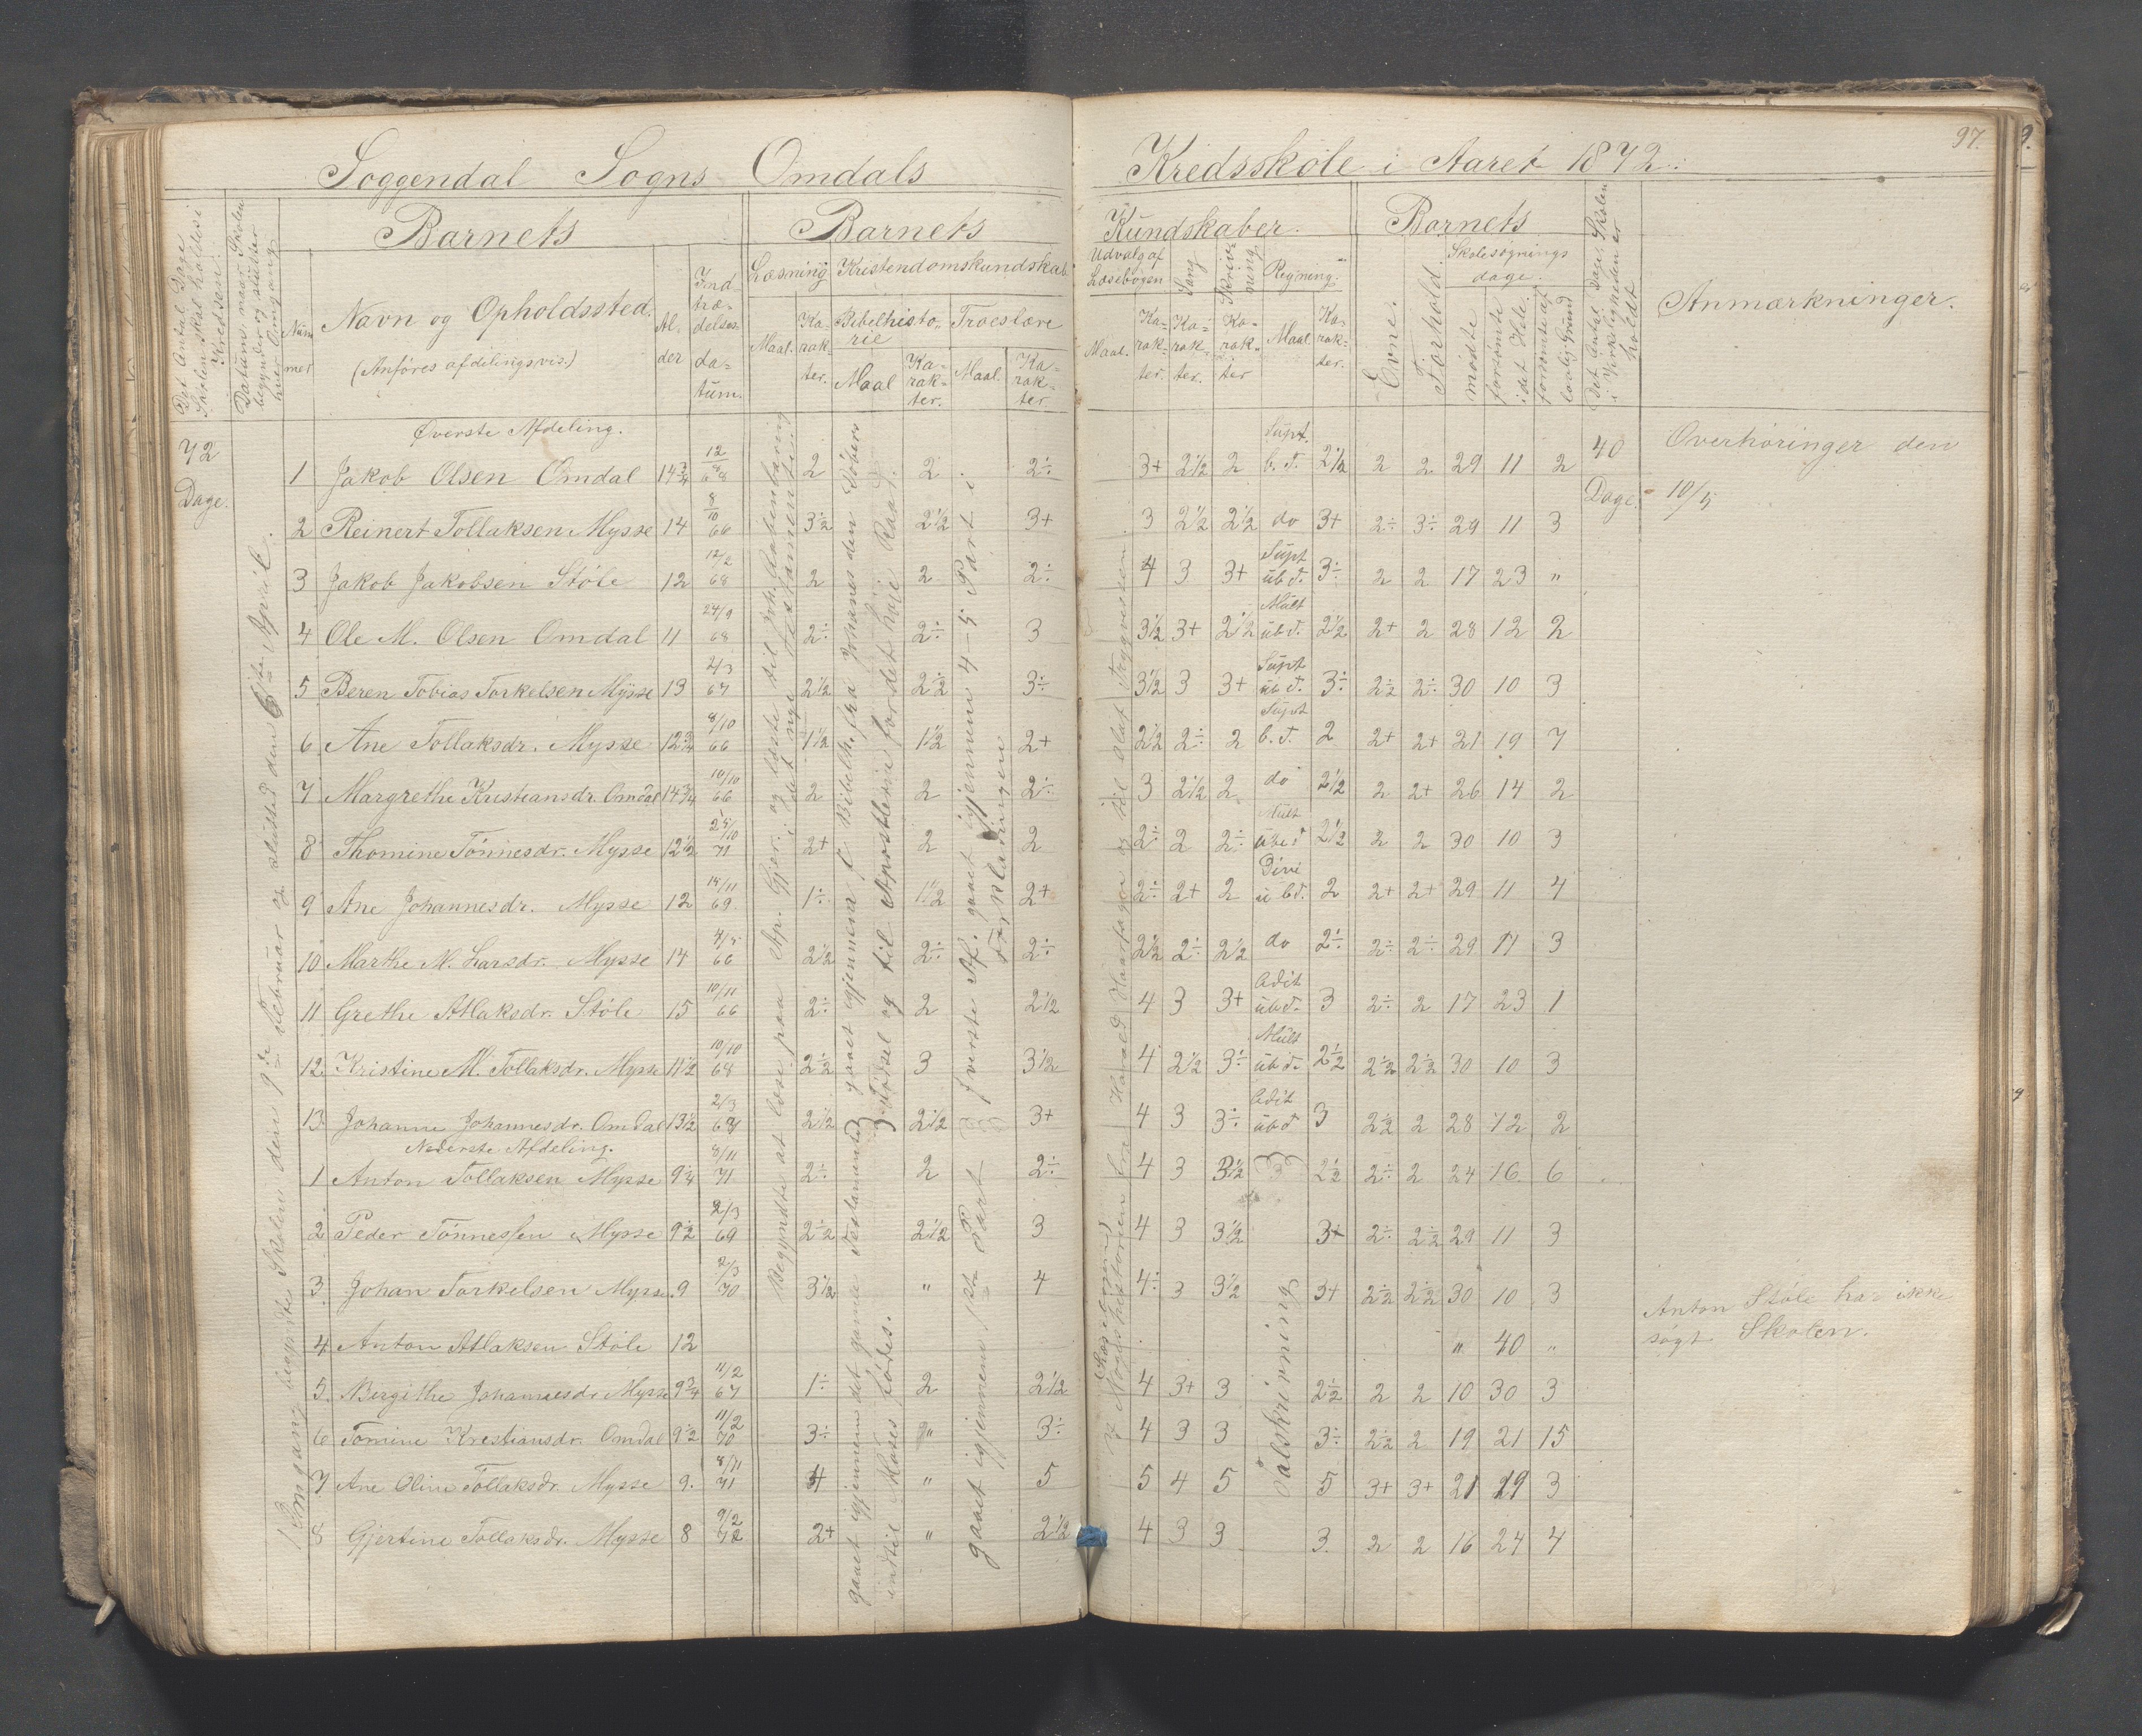 97.
Soggendal Sogns Omdals Kredsskole i Aaret 1872.
Det Antal Dage Skolen skal holdes i Kredsen.
Datum, naar Skolen begynder og slutter hver Omgang
Barnets
Nummer
Navn og Opholdssted.
(Anføres afdelingsvis.)
Alder
Indtrædelsesdatum.
Barnets Kundskaber.
Læsning
Maal.
Karakter.
Kristendomskundskab
Bibelhistorie
Maal
Karakter.
Troeslære
Maal.
Karakter.
Udvalg af Læsebogen
Maal.
Karakter.
Sang
Karakter.
Skrivning
Karakter
Regning.
Maal.
Karakter.
Barnets
Evne.
Forhold
Skolesøgningsdage.
mødte
forsømte i det Hele.
forsømte af lovlig Grund
Det Antal Dage Skolen i Virkeligheden er holdt
Anmærkninger.
72 Dage.
1 Omgang begyndte Skolen den 9de Februar og slutted den 6te April.
Øverste Afdeling.
1 Jakob Olsen Omdal 14 3/4 12/8 68 2 2 2÷ 3+ 2 1/2 2 Supt. b. T. 2 1/2 2 2 29 11 2 40 Dage. Overhøringer den 10/5
2 Reinert Tollaksen Mysse 14 8/10 66 3 1/2 2 1/2 3+ 3 2 1/2 2 1/2 do 3+ 2÷ 3÷ 29 11 3
3 Jakob Jakobsen Støle 12 12/2 68 2 2 2÷ 4 3 3+ Supt ub T. 3÷ 2 2 17 23 "
4 Ole M. Olsen Omdal 11 24/9 68 2÷ 2÷ 3 3 1/2 3+ 2 1/2 Mult ub T. 2 1/2 2+ 2 28 12 2
5 Beren Tobias Torkelsen Mysse 13 2/3 67 2 1/2 2 1/2 3÷ 3 1/2 3 3+ Supt ub T. 3÷ 2 1/2 2÷ 30 10 3
6 Ane Tollaksdr. Mysse 12 3/4 8/10 66 1 1/2 1 1/2 2+ 2 1/2 2÷ 2 Supt b. T. 2 2+ 2+ 21 19 7
7 Margrethe Kristiansdr. Omdal 14 3/4 10/10 66 2 2 2÷ 3 2 1/2 2 do 2 1/2 2 2+ 26 14 2
8 Thomine Tønnesdr. Mysse 12 1/2 25/10 71 2+ 2 2 2÷ 2 2÷ Mult ube T 2 1/2 2 2 30 10 3
9 Ane Johannesdr. Mysse 12 14/11 69 1÷ 1 1/2 2+ 2÷ 2+ 2 Divi u bT. 2 2+ 2+ 29 11 4
10 Marthe M. Larsdr. Mysse 14 4/5 66 2 1/2 2÷ 2÷ 2 1/2 2÷ 2 1/2 do 2÷ 2÷ 2÷ 29 11 3
11 Grethe Atlaksdr. Støle 15 10/11 66 2÷ 2 2 1/2 4 3 3+ Adit ub T. 3 2÷ 2 17 23 1
12. Kristine M. Tollaksdr. Mysse 11 1/2 10/10 68 2 1/2 3 3 1/2 4 2 1/2 3÷ Mult ub T. 2 1/2 2 1/2 2 1/2 30 10 3
13 Johanne Johannesdr. Omdal 13 1/2 2/3 2 1/2 2 1/2 3+ 4 3 3÷ Adit ub T 3 2 1/2 2 28 12 2
Nederste Afdeling.
1 Anton Tollaksen Mysse 9 1/4 8/11 71 2÷ 2 2÷ 4 3 3 1/2 2 1/2 2÷ 2 24 16 6
2 Peder Tønnessen Mysse 9 1/2 2/3 69 2 1/2 2 1/2 3 4 3 3 1/2 3+ 2÷ 2 1/2 29 11 3
3. Johan Torkelsen Mysse. 9 2/3 70 3 1/2 " 4 4÷ 3 3 1/2 3+ 2 1/2 2 1/2 30 10 3
4 Anton Atlaksen Støle 12 " 40 " Anton Støle har ikke søgt Skolen.
5. Bergithe Johannesdr. Mysse 9 3/4 11/2 67 1÷ 2 2 1/2 4 3+ 3 2 1/2 2 2 10 30 3
6 Tomine Krestiansdr. Omdal 9 1/2 11/2 70 3÷ " 3÷ 4 3 3 3÷ 2 1/2 2 19 21 15
7 Ane Oline Tollaksdr. Mysse 9. 8/11 71 4 " 5 5 4 5 5 3+ 3+ 21 19 3
8 Gjertine Tollaksdr. Mysse 8 9/2 72 2+ " 2 1/2 4 3 3 3. 2 2 16 24 4
Begyndte at læse paa Ap. Gjer. og læste til Joh. Aabenbaring i det nye Testamente
gaaet igjennem af Bibelh. fra Johanes den Døbers Fødsel og til Apostlene for det høje Raad.
gaaet igjennem det gamle Testamente indtil Moses fødes.
Øverste Af. gaaet igjennem 4–5 Part i Forklaringen
gaaet igjennem 1ste Part
Læsebogen
af Norgeshistorien fra Harald Haarfager og til Olaf Trygvesson.
Talskrivning